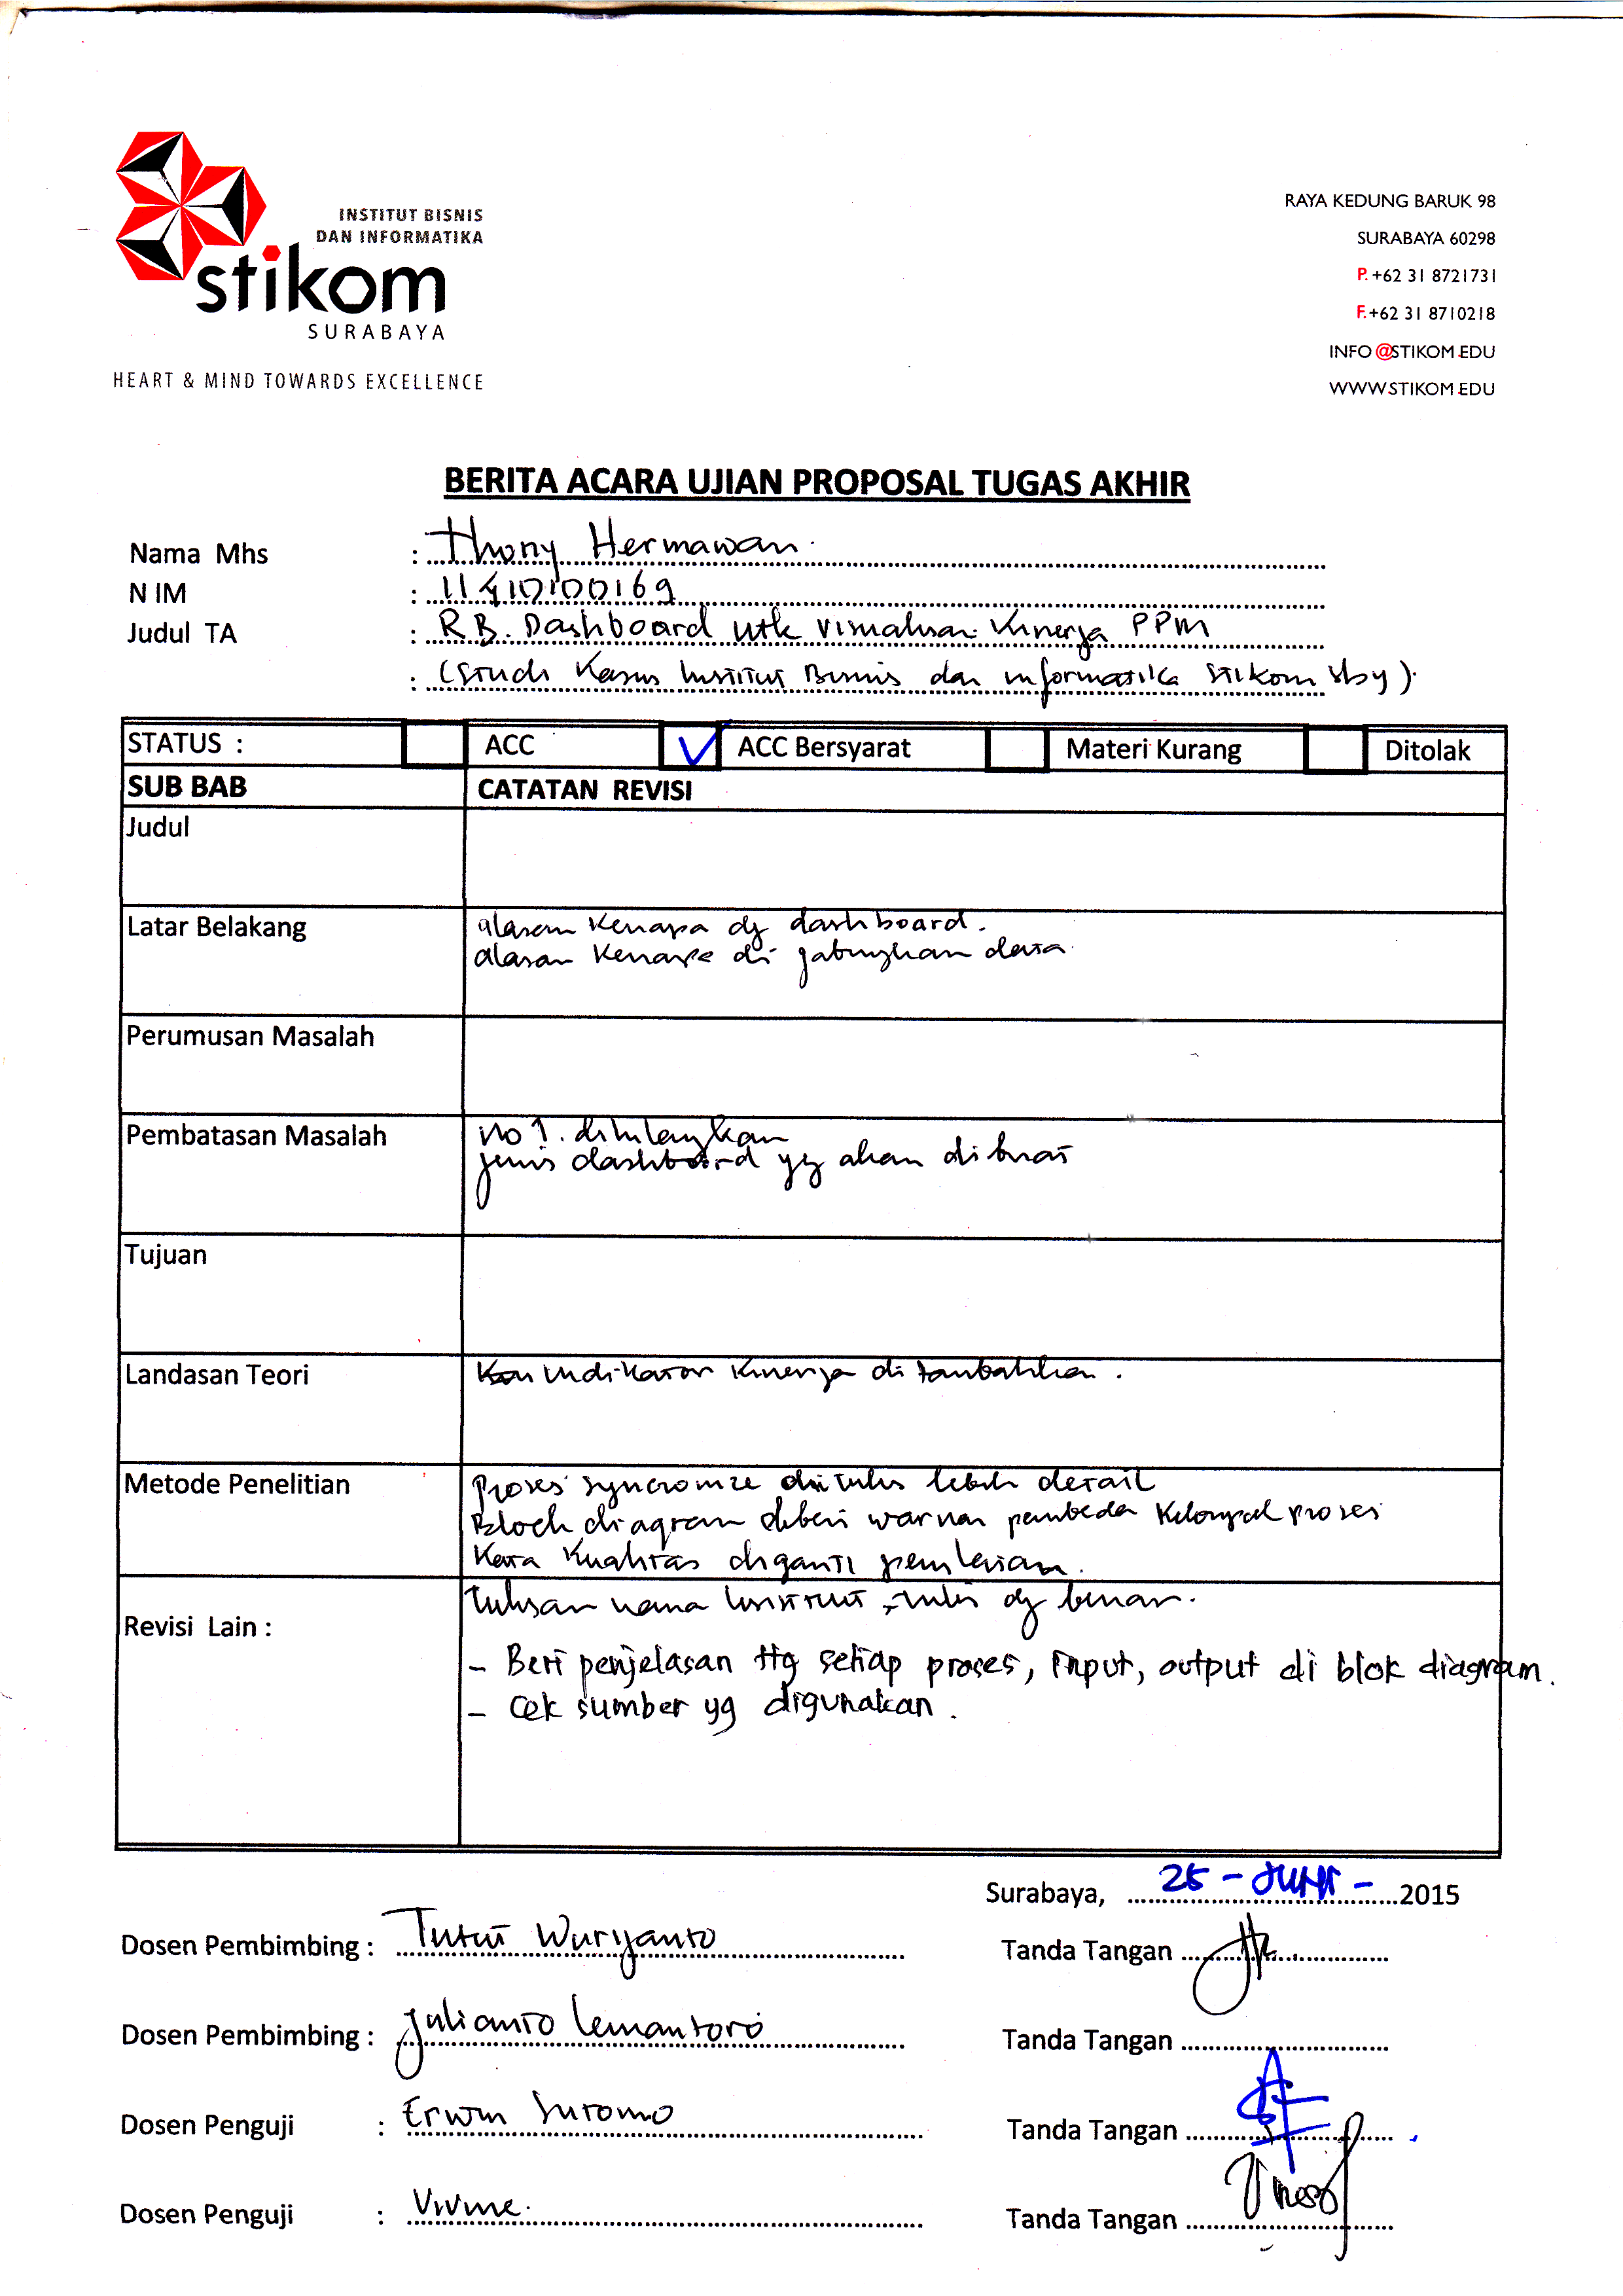 INSTITUT BISNIS
DAN INFORMATIKA
stikom
SURABAYA
HEART & MIND TOWARDS EXCELLENCE
RAYA KEDUNG BARUK 98
SURABAYA 60298
P. +62 31 8721731
F. +62 31 8710218
INFO@STIKOM.EDU
WWW.STIKOM.EDU
BERITA ACARA UJIAN PROPOSAL TUGAS AKHIR
Nama Mhs : Thony Hermawan
NIM : 11410100169
Judul TA : R.B. Dashboard utk visualisasi Kinerja PPM
: (Studi Kasus Institut Bisnis dan informatika Stikom sby).
STATUS : ACC ✓ ACC Bersyarat Materi Kurang Ditolak
SUB BAB CATATAN REVISI
Judul
Latar Belakang alasan kenapa dg dashboard.
alasan kenapa di gabungkan data
Perumusan Masalah
Pembatasan Masalah No 1. dihilangkan
jenis dashboard yg akan dibuat
Tujuan
Landasan Teori Indikator Kinerja di tambahkan.
Metode Penelitian Proses syncronize ditulis lebih detail
Block diagram diberi warna pembeda Kelompok proses
Kata Kualitas diganti penilaian.
Revisi Lain : Tulisan nama Institut, tulis dg benar.
- Beri penjelasan ttg setiap proses, input, output di blok diagram.
- Cek sumber yg digunakan.
Surabaya, 25 - JUNI - 2015
Dosen Pembimbing : Tutut Wuryanto Tanda Tangan
Dosen Pembimbing : Julianto Lemantoro Tanda Tangan
Dosen Penguji : Erwin Sutomo Tanda Tangan
Dosen Penguji : Vivine. Tanda Tangan